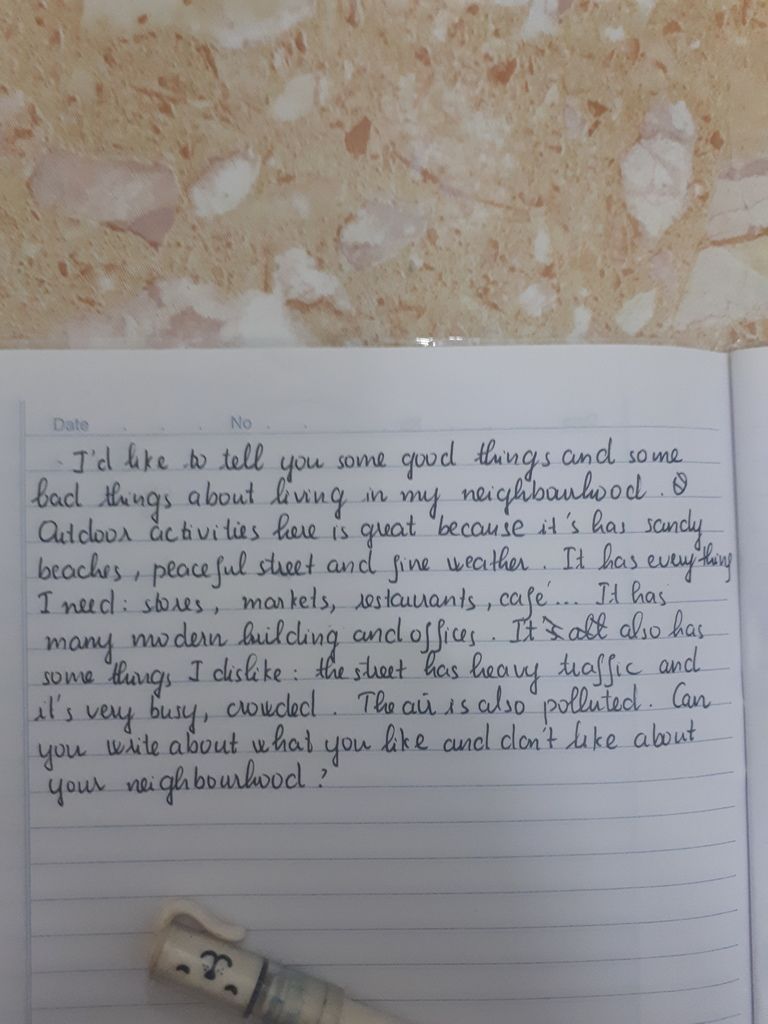 Date . . . No . .
I'd like to tell you some good things and some
bad things about living in my neighbourhood.
Outdoor activities here is great because it's has sandy
beaches, peaceful street and fine weather. It has everything
I need: stores, markets, restaurants, café... It has
many modern building and offices. It also has
some things I dislike: the street has heavy traffic and
it's very busy, crowded. The air is also polluted. Can
you write about what you like and don't like about
your neighbourhood?